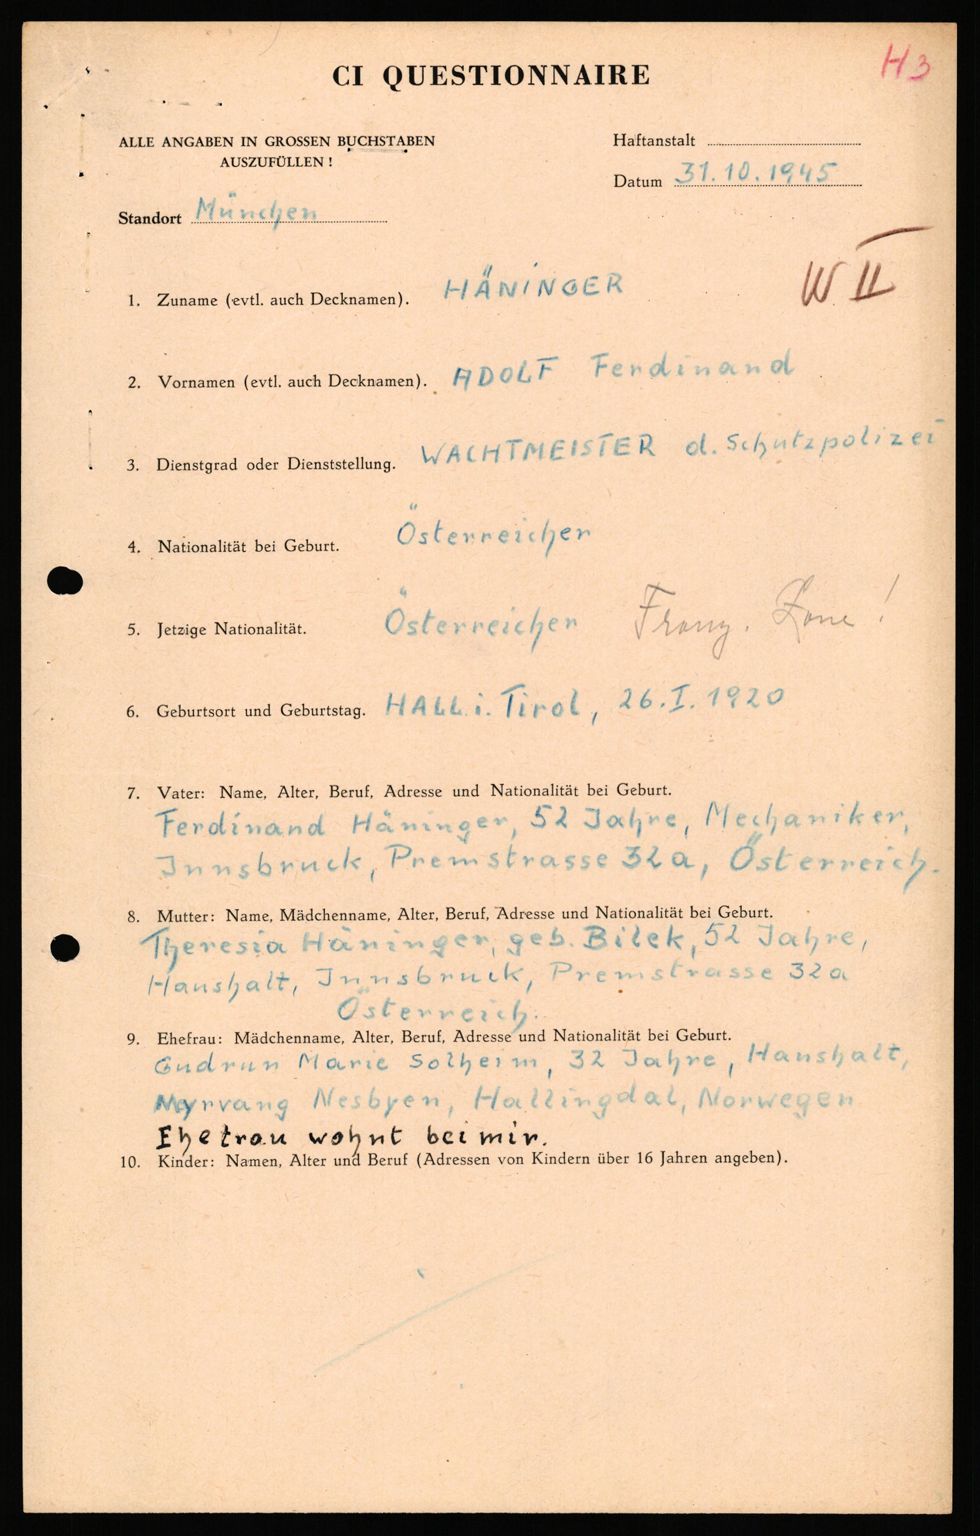 H3
CI QUESTIONNAIRE
ALLE ANGABEN IN GROSSEN BUCHSTABEN
AUSZUFÜLLEN !
Haftanstalt
Datum 31.10.1945
Standort München
W II
1. Zuname (evtl. auch Decknamen). HÄNINGER
2. Vornamen (evtl. auch Decknamen). ADOLF Ferdinand
3. Dienstgrad oder Dienststellung. WACHTMEISTER d. Schutzpolizei
4. Nationalität bei Geburt. Österreicher
5. Jetzige Nationalität. Österreicher Franz. Zone!
6. Geburtsort und Geburtstag. HALL i. Tirol, 26.I.1920
7. Vater: Name, Alter, Beruf, Adresse und Nationalität bei Geburt.
Ferdinand Häninger, 52 Jahre, Mechaniker,
Innsbruck, Premstrasse 32a, Österreich.
8. Mutter: Name, Mädchenname, Alter, Beruf, Adresse und Nationalität bei Geburt.
Theresia Häninger, geb. Bilek, 52 Jahre,
Haushalt, Innsbruck, Premstrasse 32a
Österreich.
9. Ehefrau: Mädchenname, Alter, Beruf, Adresse und Nationalität bei Geburt.
Gudrun Marie Solheim, 32 Jahre, Haushalt,
Myrvang Nesbyen, Hallingdal, Norwegen
Ehefrau wohnt bei mir.
10. Kinder: Namen, Alter und Beruf (Adressen von Kindern über 16 Jahren angeben).